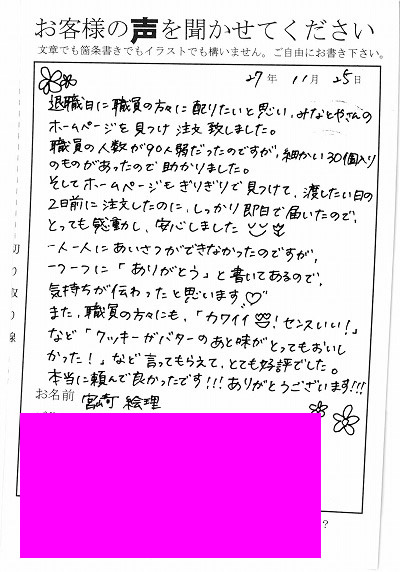 お客様の声を聞かせてください
文章でも箇条書きでもイラストでも構いません。ご自由にお書き下さい。
27年 11月 25日
退職日に職員の方々に配りたいと思い、みなとやさんの
ホームページを見つけ注文致しました。
職員の人数が90人弱だったのですが、細かい30個入り
のものがあったので助かりました。
そしてホームページもぎりぎりで見つけて、渡したい日の
2日前に注文したのに、しっかり即日で届いたので、
とっても感動し、安心しました
一人一人にあいさつができなかったのですが、
一つ一つに「ありがとう」と書いてあるので、
気持ちが伝わったと思います♡
また、職員の方々にも、「カワイイ!センスいい!」
など「クッキーがバターのあと味がとってもおいし
かった!」など言ってもらえて、とても好評でした。
本当に頼んで良かったです!!!ありがとうございます!!!
お名前 宮崎 絵理
?
切り取り線